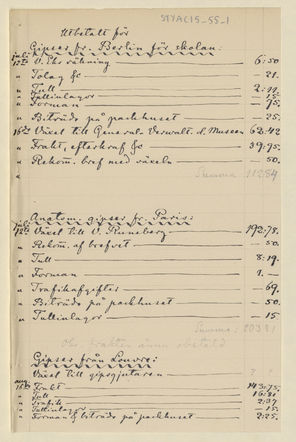 STYAC15-55-1
Utbetalt för
Gipser fr. Berlin för skolan:
juli
12te V. Eks räkning 6:50
" Tolag &c — 21.
" Tull 2:11
" Tullinlagor — 15.
" Forman — 75.
" Biträde på packhuset — 25.
16te Växel till General-Verwalt. d. Museen 62:42
" Frakt, efterkraf &c 39:95.
" Rekom. bref med växeln — 50.
Summa 11284
Anatom. gipser fr. Paris:
juli
12te Växel till V. Runeberg 192:78.
" Rekom. af brefvet — 50.
" Tull 8:19.
" Forman 1. —
" Trafikafgifter — 69.
" Biträde på packhuset — 50.
" Tullinlagor — 15
Summa: 20381
Obs. frakten ännu obetald
Gipser från Louvre:
Växel till gipsgjutaren ? ?
aug.
16te Frakt 143:75.
" Tull
" Trafik 2:37
" Tullinlagor — 15.
" Forman & biträde på packhuset 2:25.